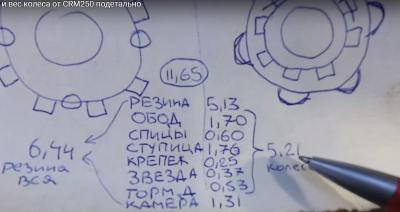 и вес колеса от CRM250 подетально
11,65
РЕЗИНА 5,13
ОБОД 1,70
СПИЦЫ 0,60
СТУПИЦА 1,76
КРЕПЕЖ 0,25
ЗВЕЗДА 0,37
ТОРМ.Д 0,53
КАМЕРА 1,31
6,44
резина
вся
5,21
колесо